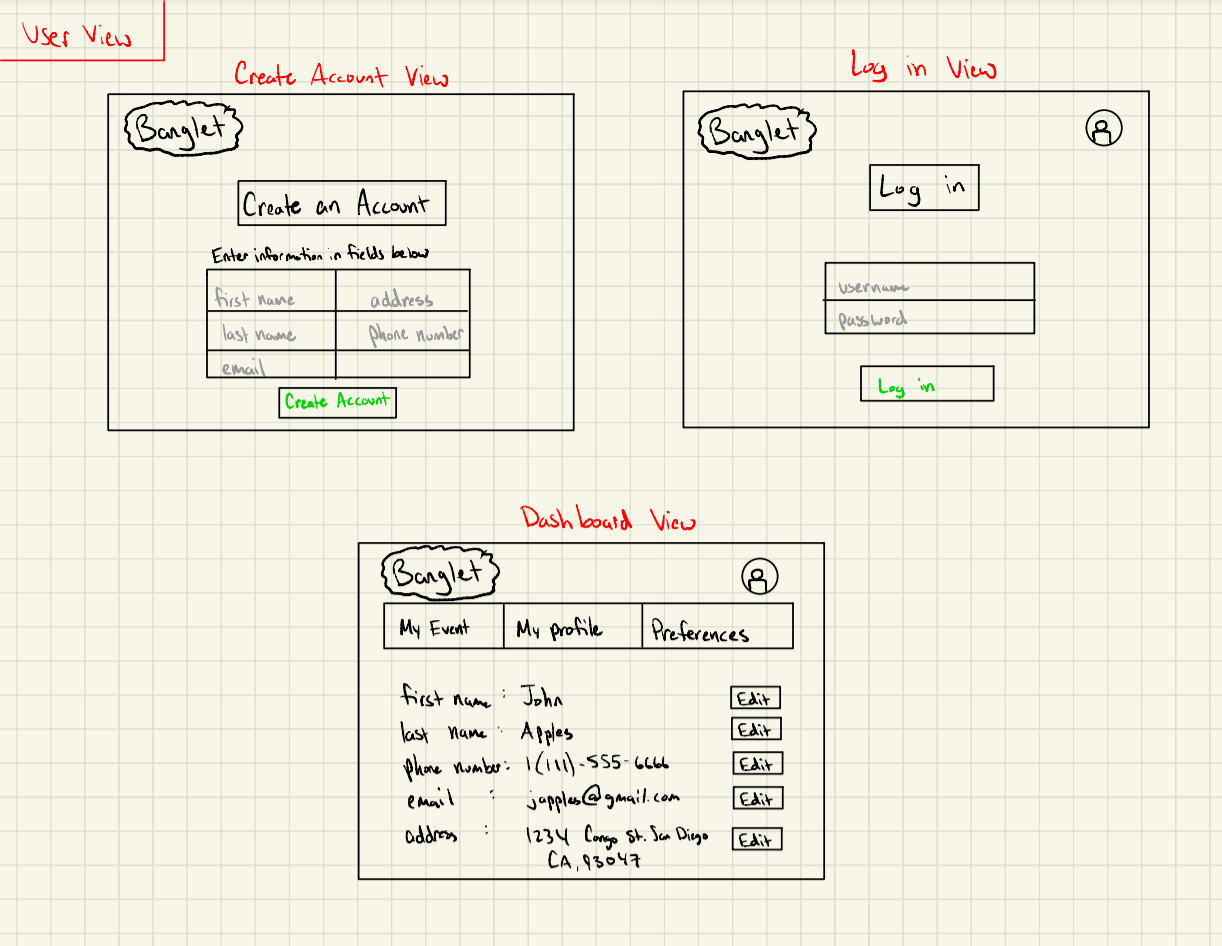 User View
Create Account View
Banglet
Create an Account
Enter information in fields below
first name
address
last name
phone number
email
Create Account
Log in View
Banglet
Log in
username
password
Log in
Dashboard View
Banglet
My Event
My profile
Preferences
first name : John
Edit
last name : Apples
Edit
phone number: 1(111)-555-6666
Edit
email : japples@gmail.com
Edit
address : 1234 Congo St. San Diego
CA, 93047
Edit